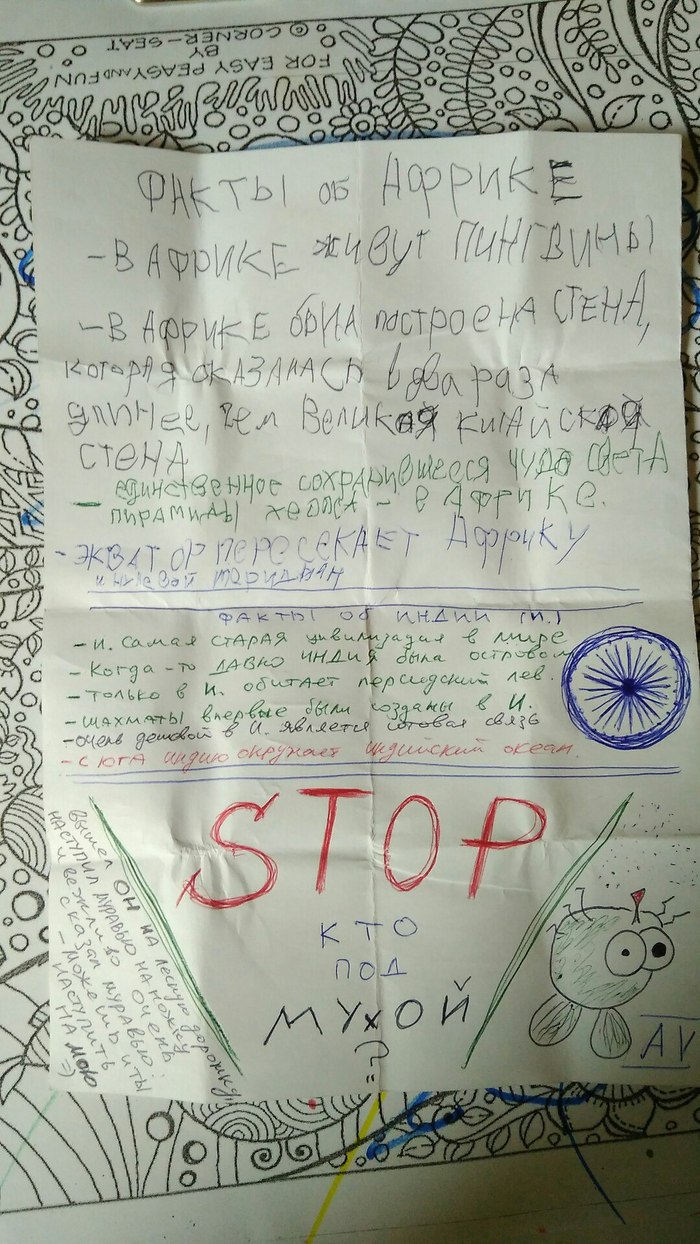 © CORNER-SEAT
BY
FOR EASY PEASY AND FUN
ФАКТЫ ОБ АФРИКЕ
- В АФРИКЕ ЖИВУТ ПИНГВИНЫ
- В АФРИКЕ БЫЛА ПОСТРОЕНА СТЕНА,
КОТОРАЯ ОКАЗАЛАСЬ В ДВА РАЗА
ДЛИНЕЕ, ЧЕМ ВЕЛИКАЯ КИТАЙСКАЯ
СТЕНА
- ЕДИНСТВЕННОЕ СОХРАНИВШЕЕСЯ ЧУДО СВЕТА
ПИРАМИДЫ ХЕОПСА - В АФРИКЕ.
- ЭКВАТОР ПЕРЕСЕКАЕТ АФРИКУ
И НУЛЕВОЙ МЕРИДИАН
ФАКТЫ ОБ ИНДИИ (И.)
- И. самая СТАРАЯ цивилизация в мире
- Когда-то ДАВНО ИНДИЯ была островом
- только в И. обитает персидский лев.
- шахматы впервые были созданы в И.
- очень дешовой в И. является сотовая связь
- с юга индию окружает индийский океан.
STOP
КТО
ПОД
МУХОЙ
=)
вышел ОН на лесную дорожку,
наступил муравью на ножку
и вежливо очень
сказал муравью:
- можешь и ты
наступить
на мою
=)
AV